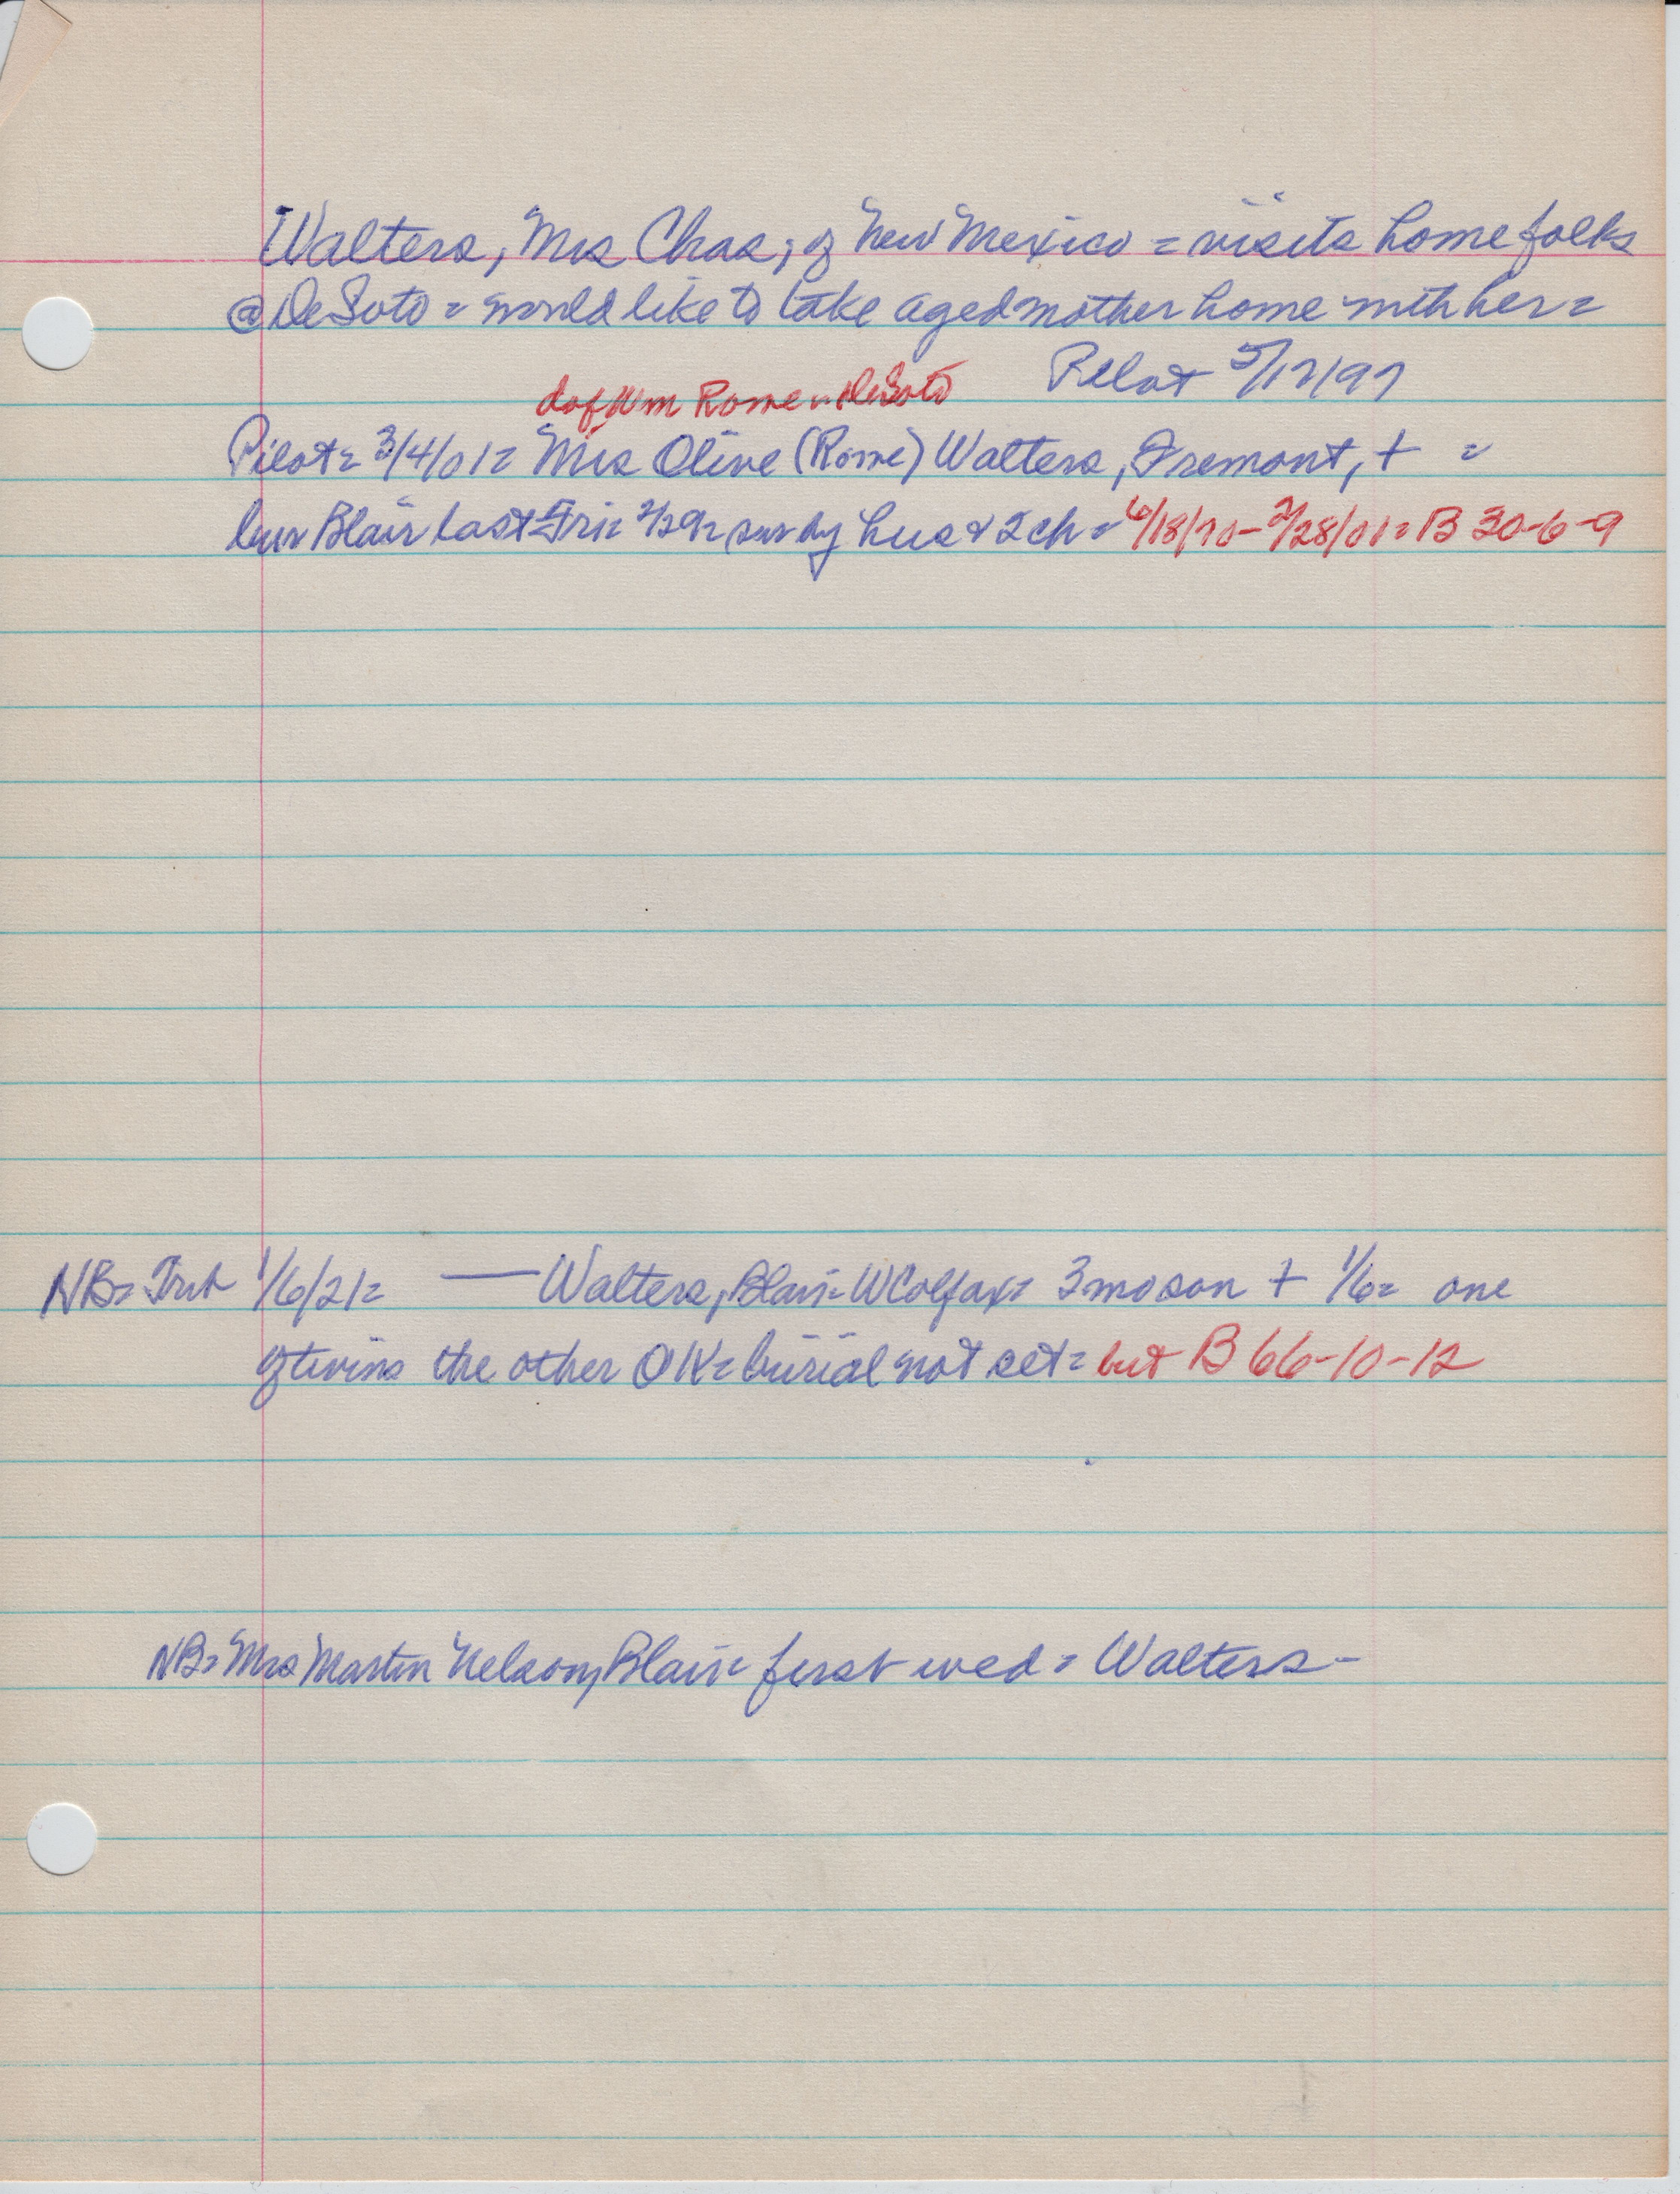 Walters, Mrs Chas; of New Mexico = visits home folks
@ DeSoto = would like to take aged mother home with her =
Pilot 5/12/97
d of Wm Rowe DeSoto
Pilot = 3/4/01 = Mrs Olive (Rowe) Walters, Fremont, + =
bur Blair last Fri = 2/29 = sur by hus & 2 ch = 6/18/70 - 2/28/01 = B 30-6-9
NB = Trib 1/6/21 = — Walters, Blair = W Colfax = 3 mo son + 1/6 = one
of twins the other OK = burial not set = but B 66-10-12
NB = Mrs Martin Nelson, Blair = first wed = Walters -